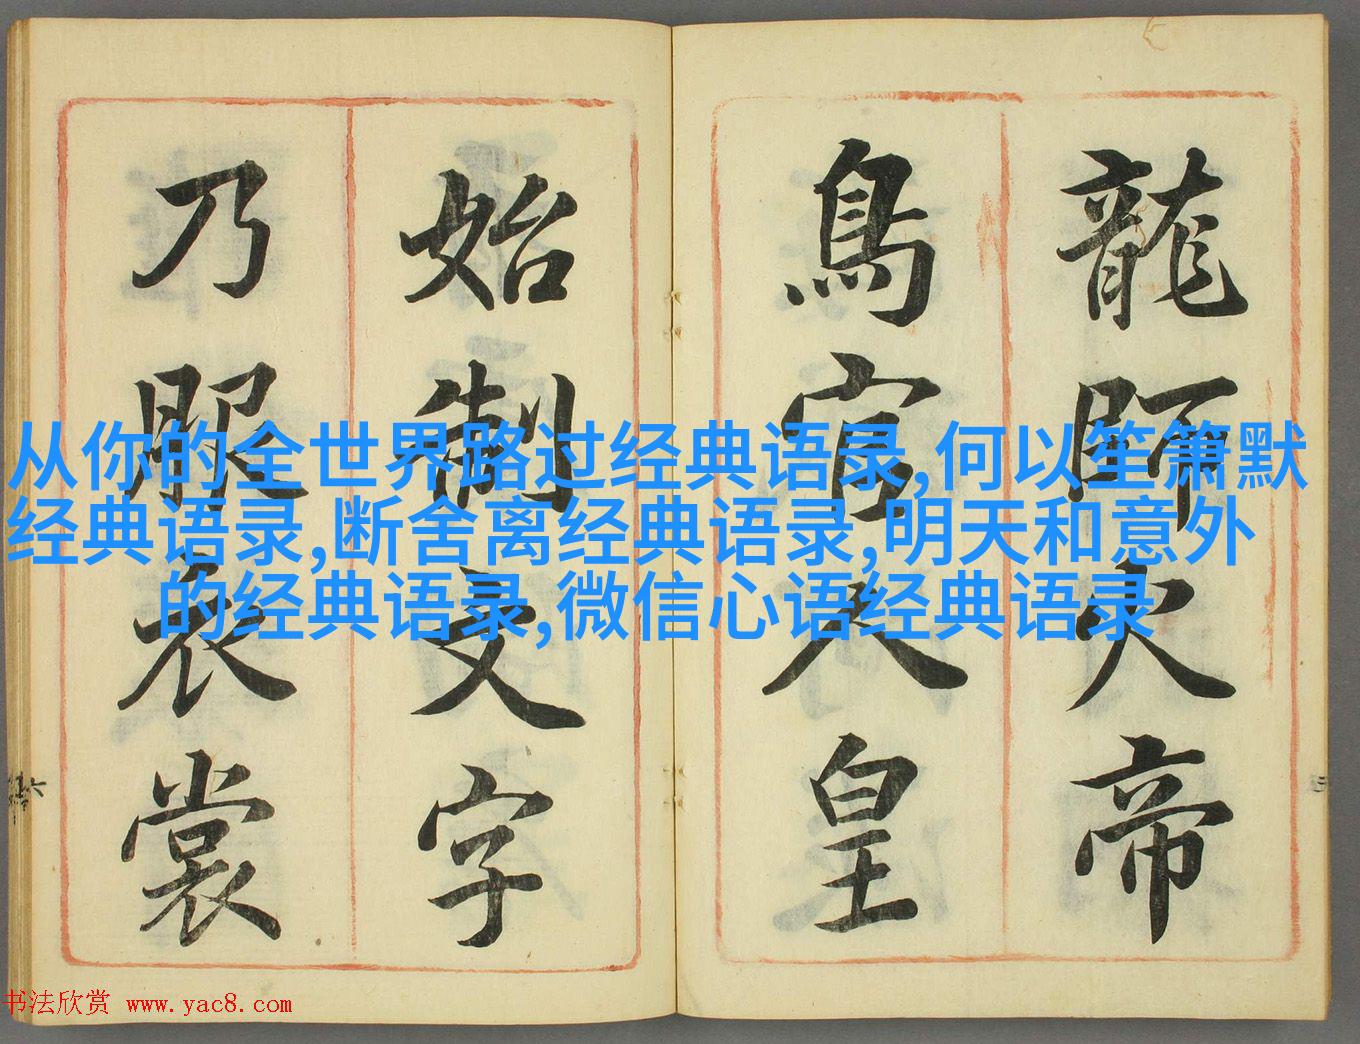 龍師火帝
鳥官人皇
始制文字
乃服衣裳
从你的全世界路过经典语录,何以笙箫默
经典语录,断舍离经典语录,明天和意外
的经典语录,微信心语经典语录
书法欣赏 www.yac8.com